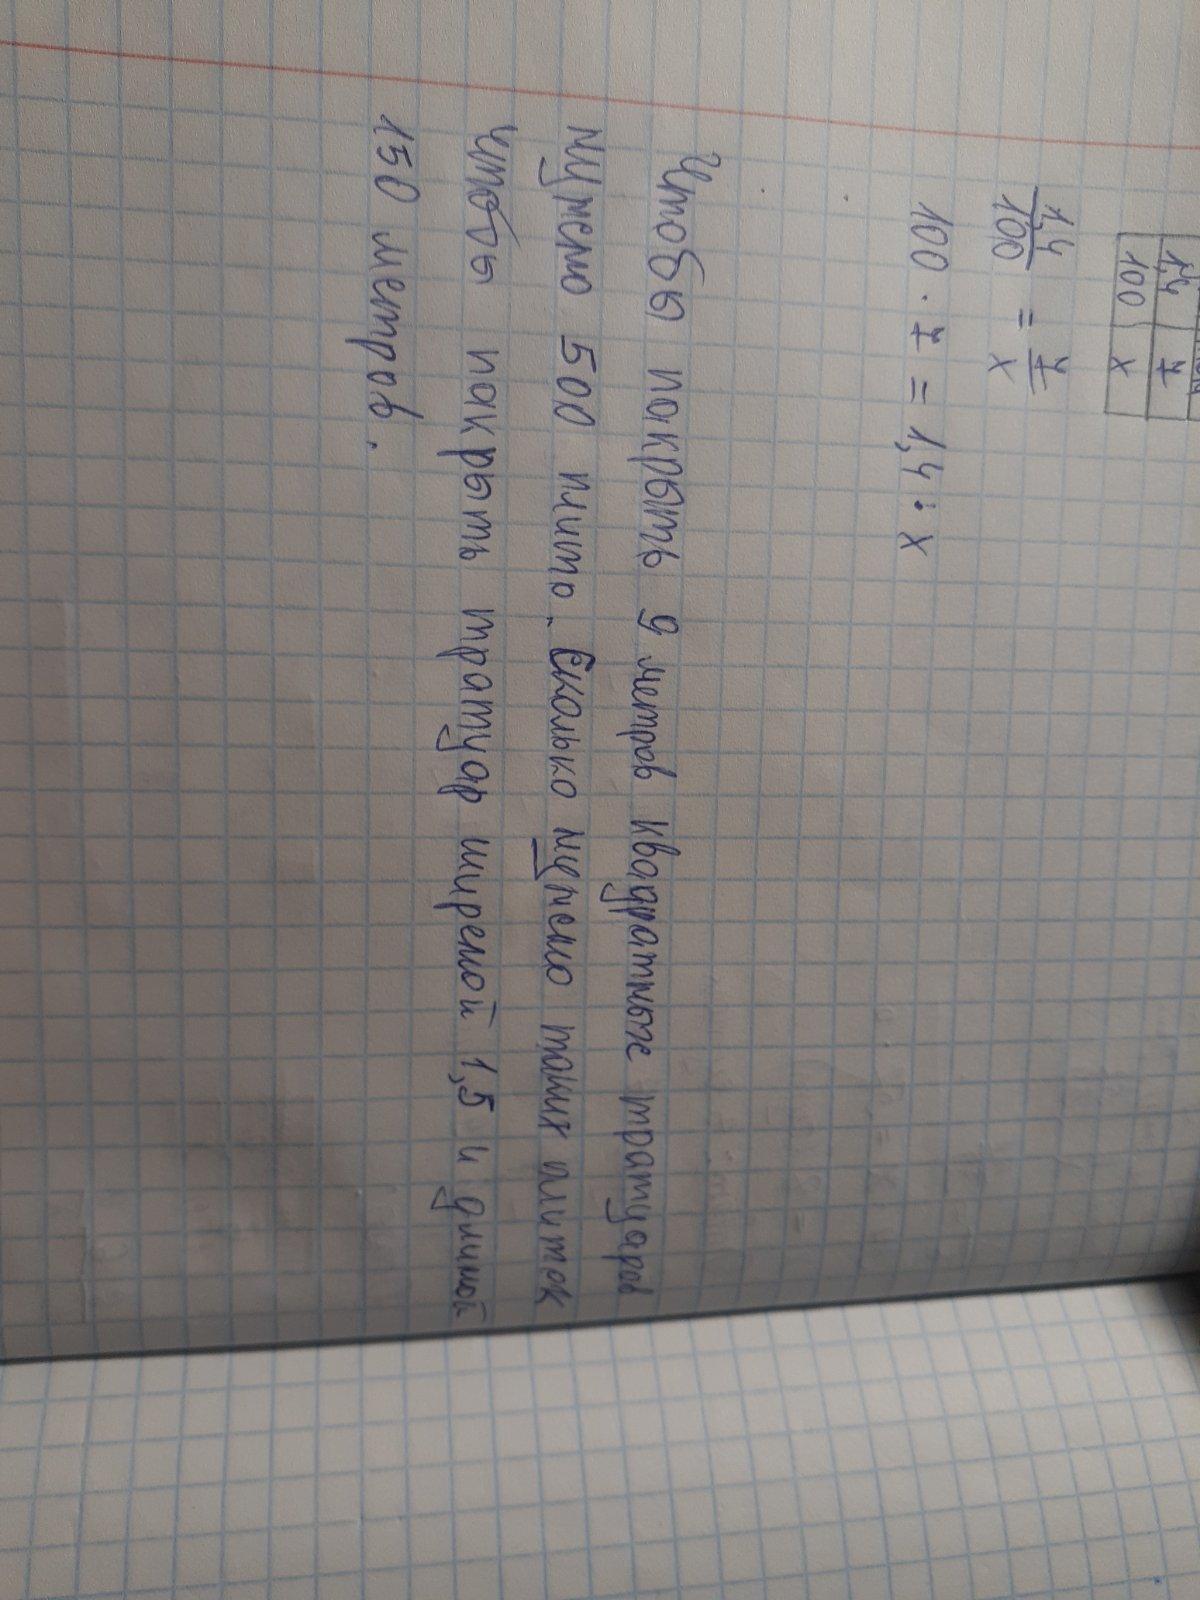 1,4 7
100 x
1,4/100 = 7/x
100 · 7 = 1,4 : x
Чтобы покрыть 9 метров квадратных тратуаров
нужно 500 плито. Сколько нужно таких плиток
чтобы покрыть тратуар ширеной 1,5 и длиной
150 метров.